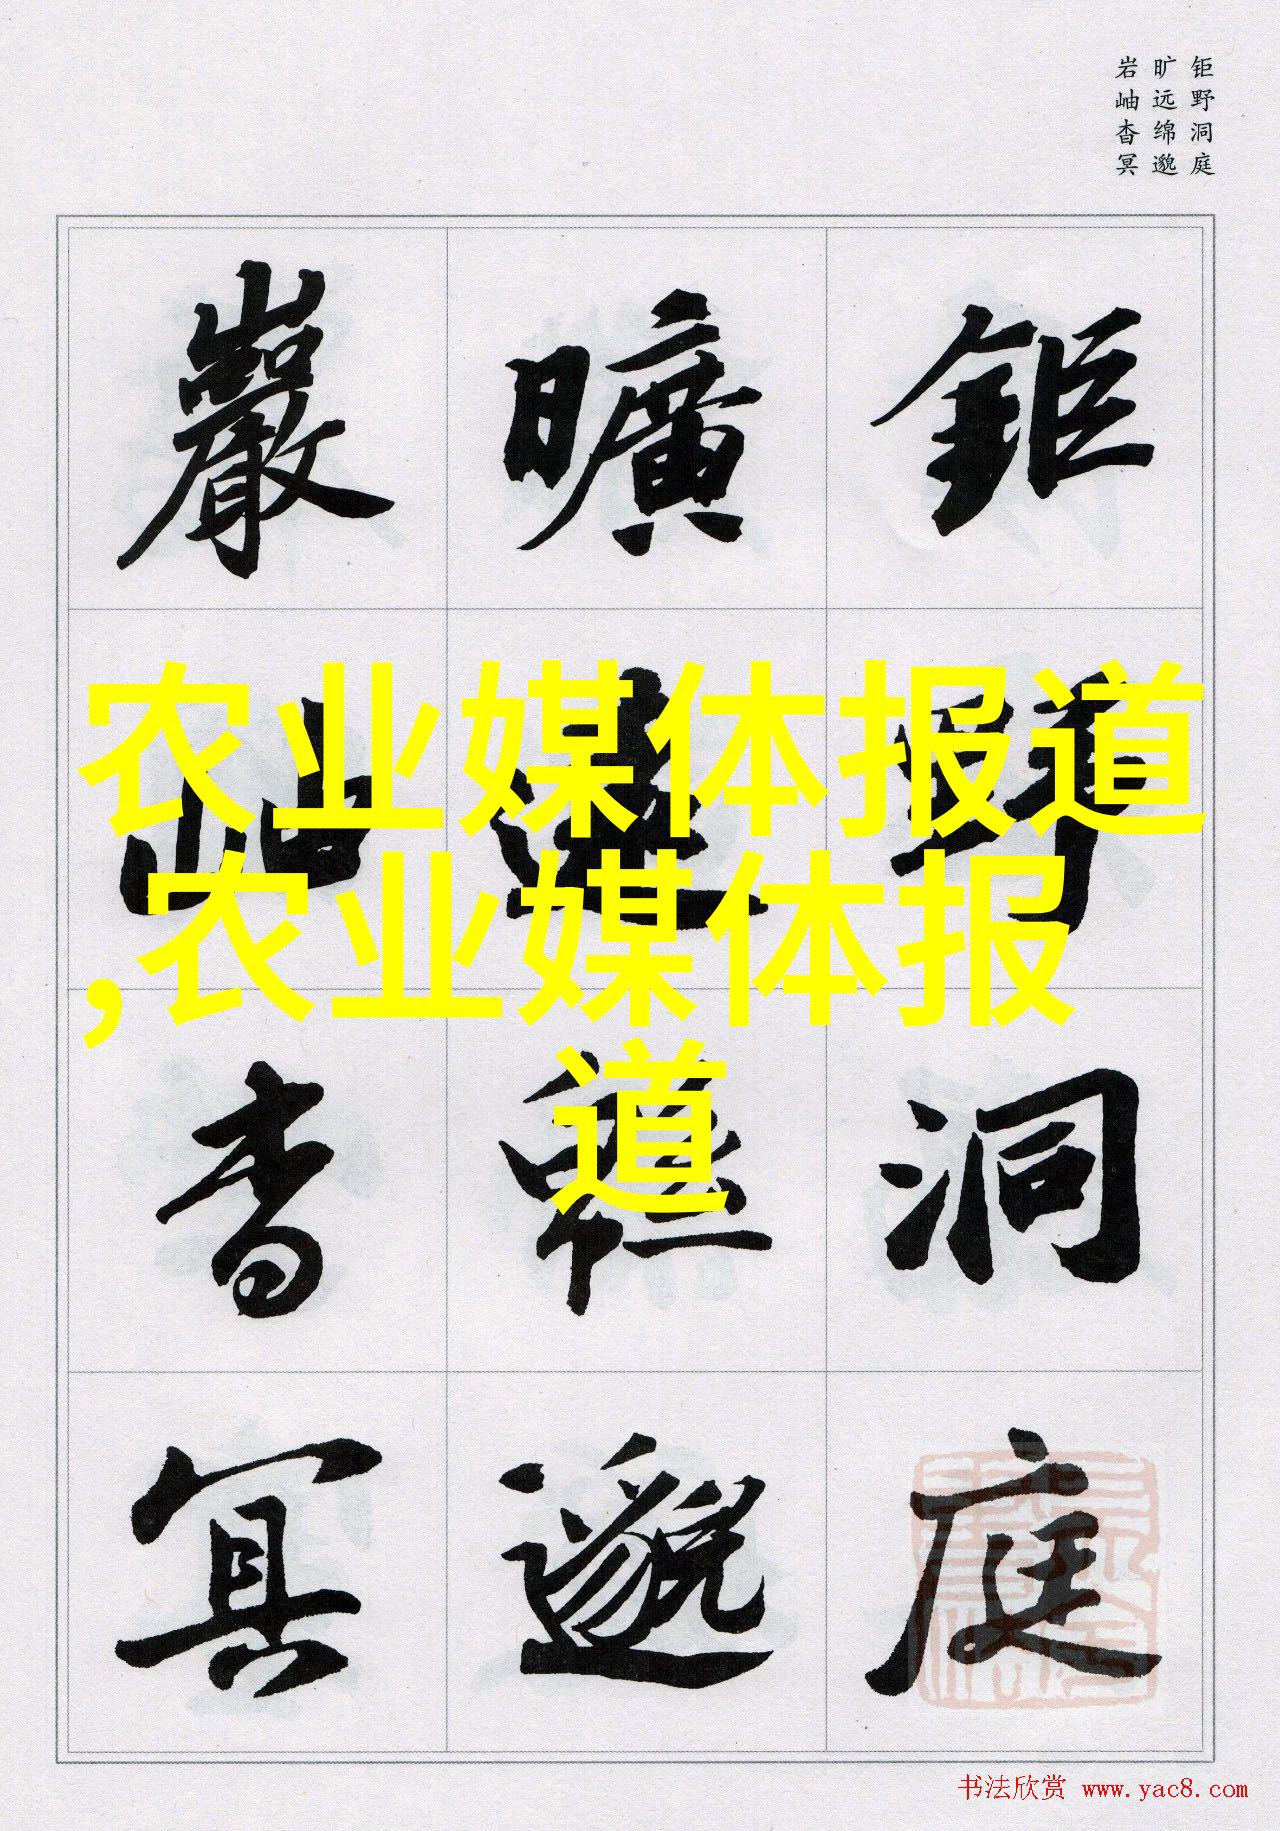 钜野洞庭
旷远绵邈
岩岫杳冥
鉅野洞庭
曠遠緜邈
巖岫杳冥
农业媒体报道
,农业媒体报
道
书法欣赏 www.yac8.com